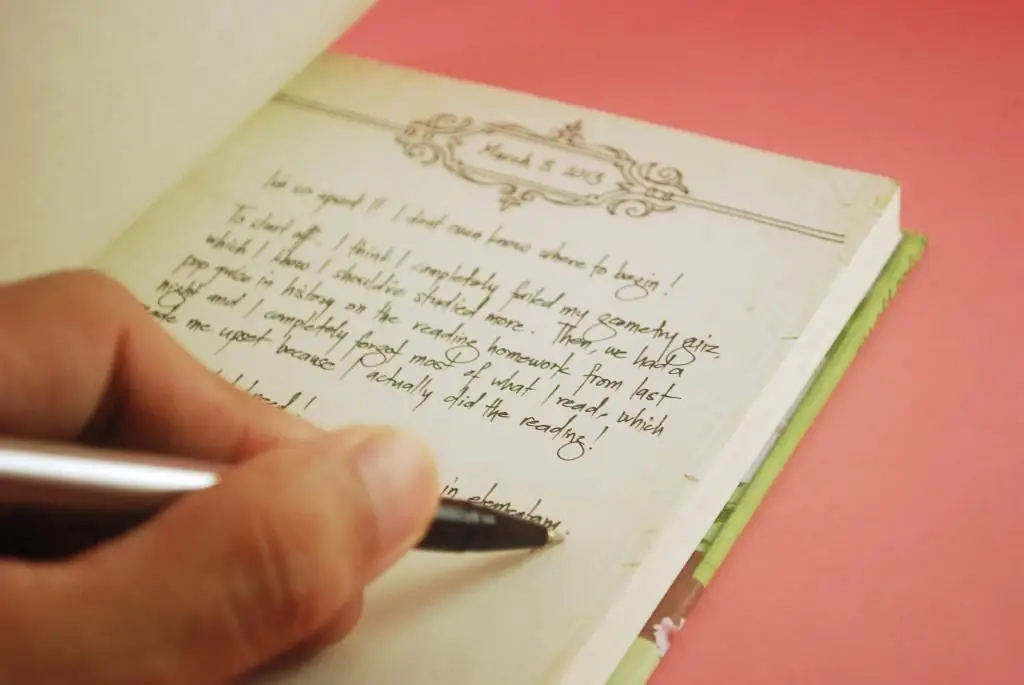 March 3 2013
I'm so upset!! I don't even know where to begin!
To start off.. I think I completely failed my geometry quiz,
which I know I should've studied more. Then, we had a
pop quiz in history on the reading homework from last
night and I completely forgot most of what I read, which
made me upset because I actually did the reading!
in elementary.